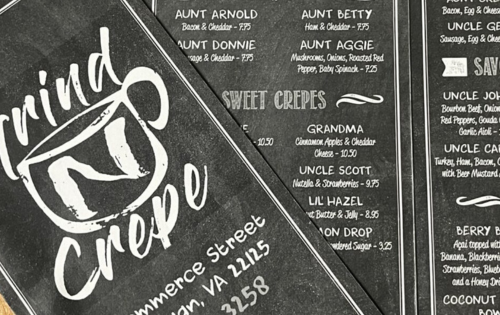 Grind
N
Crepe
Street
VA 22125
3258
AUNT ARNOLD
Bacon & Cheddar - 7.75
AUNT DONNIE
& Cheddar - 7.75
AUNT BETTY
Ham & Cheddar - 7.75
AUNT AGGIE
Mushrooms, Onions, Roasted Red
Pepper, Baby Spinach - 7.25
SWEET CREPES
- 10.50
GRANDMA
Cinnamon Apples & Cheddar
Cheese - 10.50
UNCLE SCOTT
Nutella & Strawberries - 9.75
LIL HAZEL
Butter & Jelly - 8.95
DROP
Sugar - 3.25
Bacon, Egg &
UNCLE
Sausage, Egg &
UNCLE
Bourbon Beef,
Red Peppers, Gouda
Garlic Aioli -
UNCLE
Turkey, Ham, Bacon,
with Beer Mustard
BERRY
Açaí topped
Banana,
Strawberries,
and a Honey
COCONUT